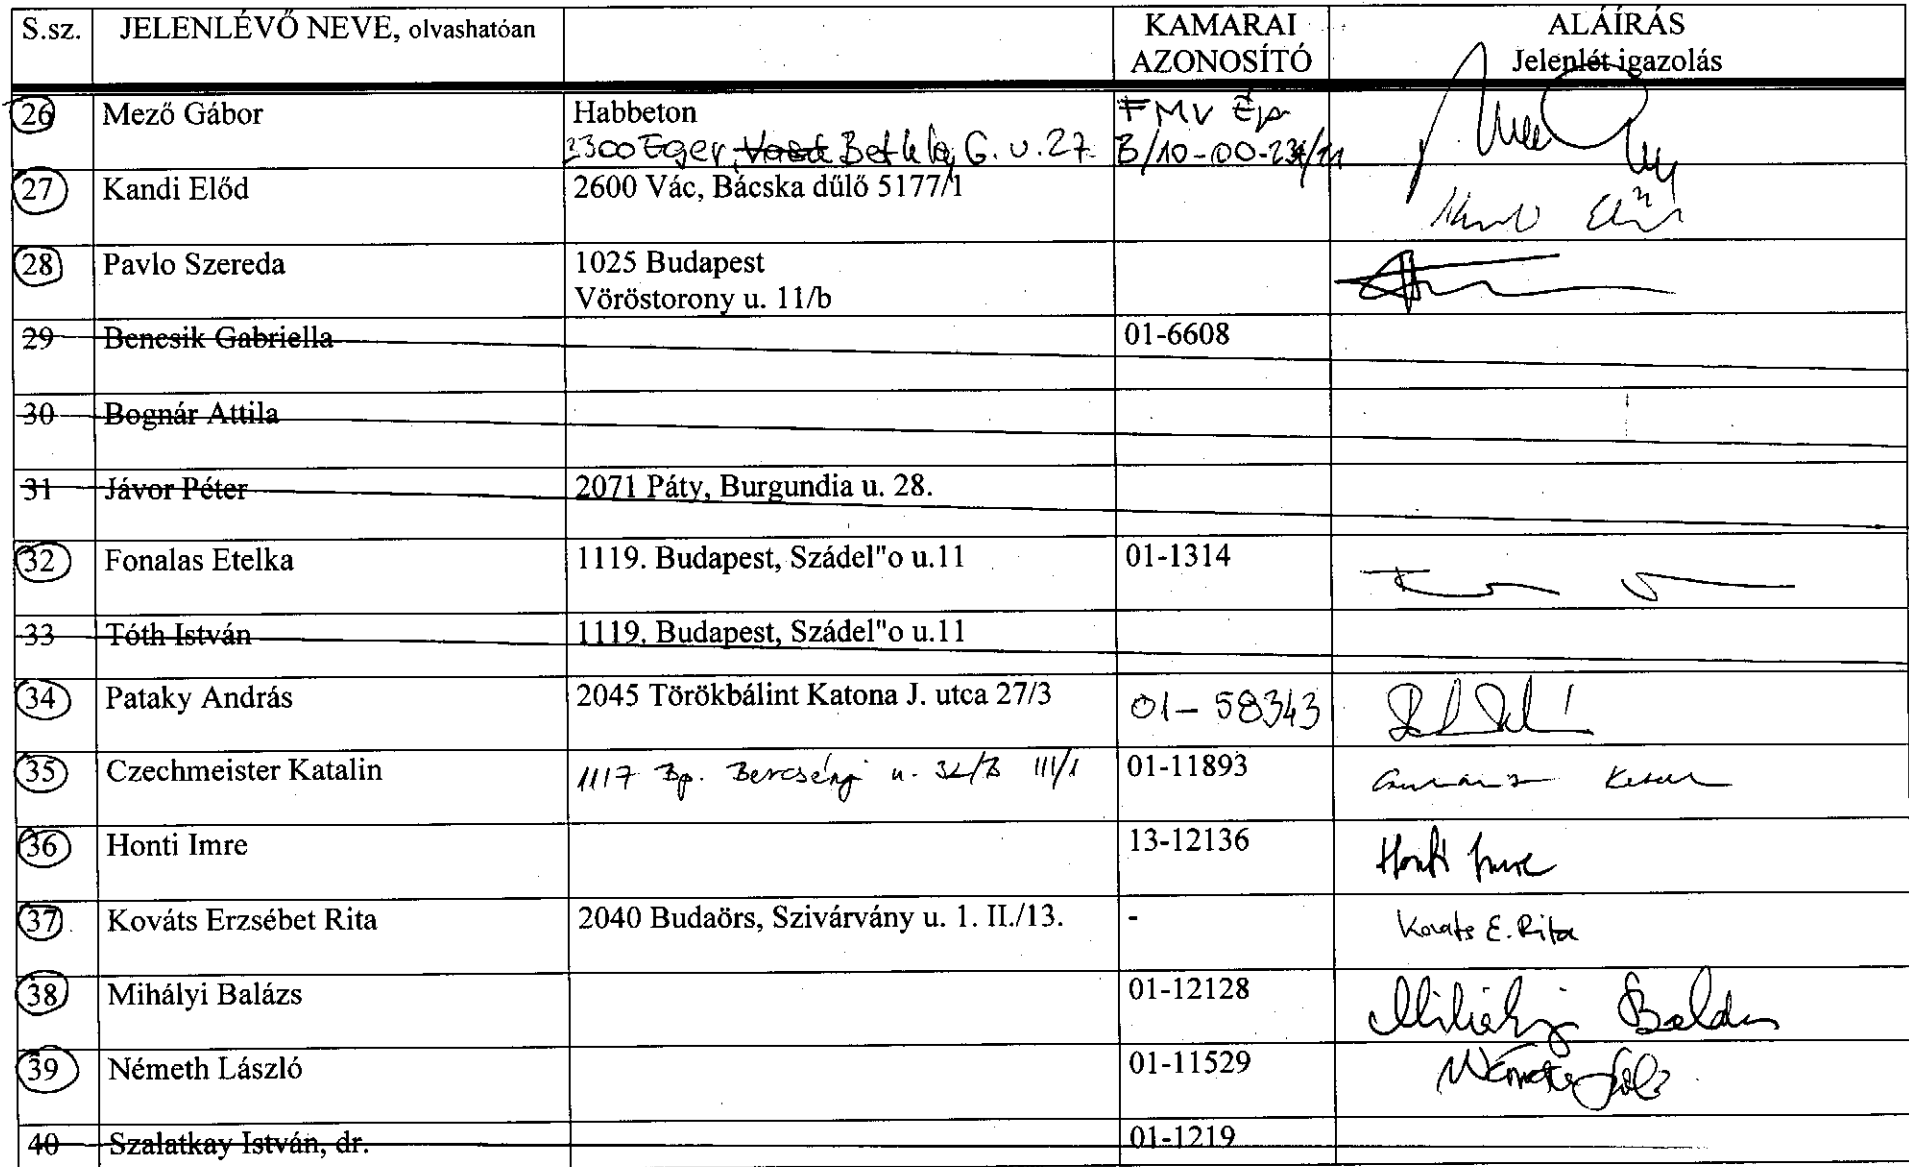 S.sz. JELENLÉVŐ NEVE, olvashatóan KAMARAI AZONOSÍTÓ ALÁÍRÁS Jelenlét igazolás
26 Mező Gábor Habbeton FMV Ép
2300 Eger, G. u. 27. B/10-00-
27 Kandi Előd 2600 Vác, Bácska dűlő 5177/1
28 Pavlo Szereda 1025 Budapest
Vöröstorony u. 11/b
29 Bencsik Gabriella 01-6608
30 Bognár Attila
31 Jávor Péter 2071 Páty, Burgundia u. 28.
32 Fonalas Etelka 1119. Budapest, Szádel"o u.11 01-1314
33 Tóth István 1119. Budapest, Szádel"o u.11
34 Pataky András 2045 Törökbálint Katona J. utca 27/3 01-58343
35 Czechmeister Katalin 1117 Bp. Bercsényi u. III/1 01-11893
36 Honti Imre 13-12136 Honti Imre
37 Kováts Erzsébet Rita 2040 Budaörs, Szivárvány u. 1. II./13. - Kováts E. Rita
38 Mihályi Balázs 01-12128 Mihályi Balázs
39 Németh László 01-11529
40 Szalatkay István, dr. 01-1219